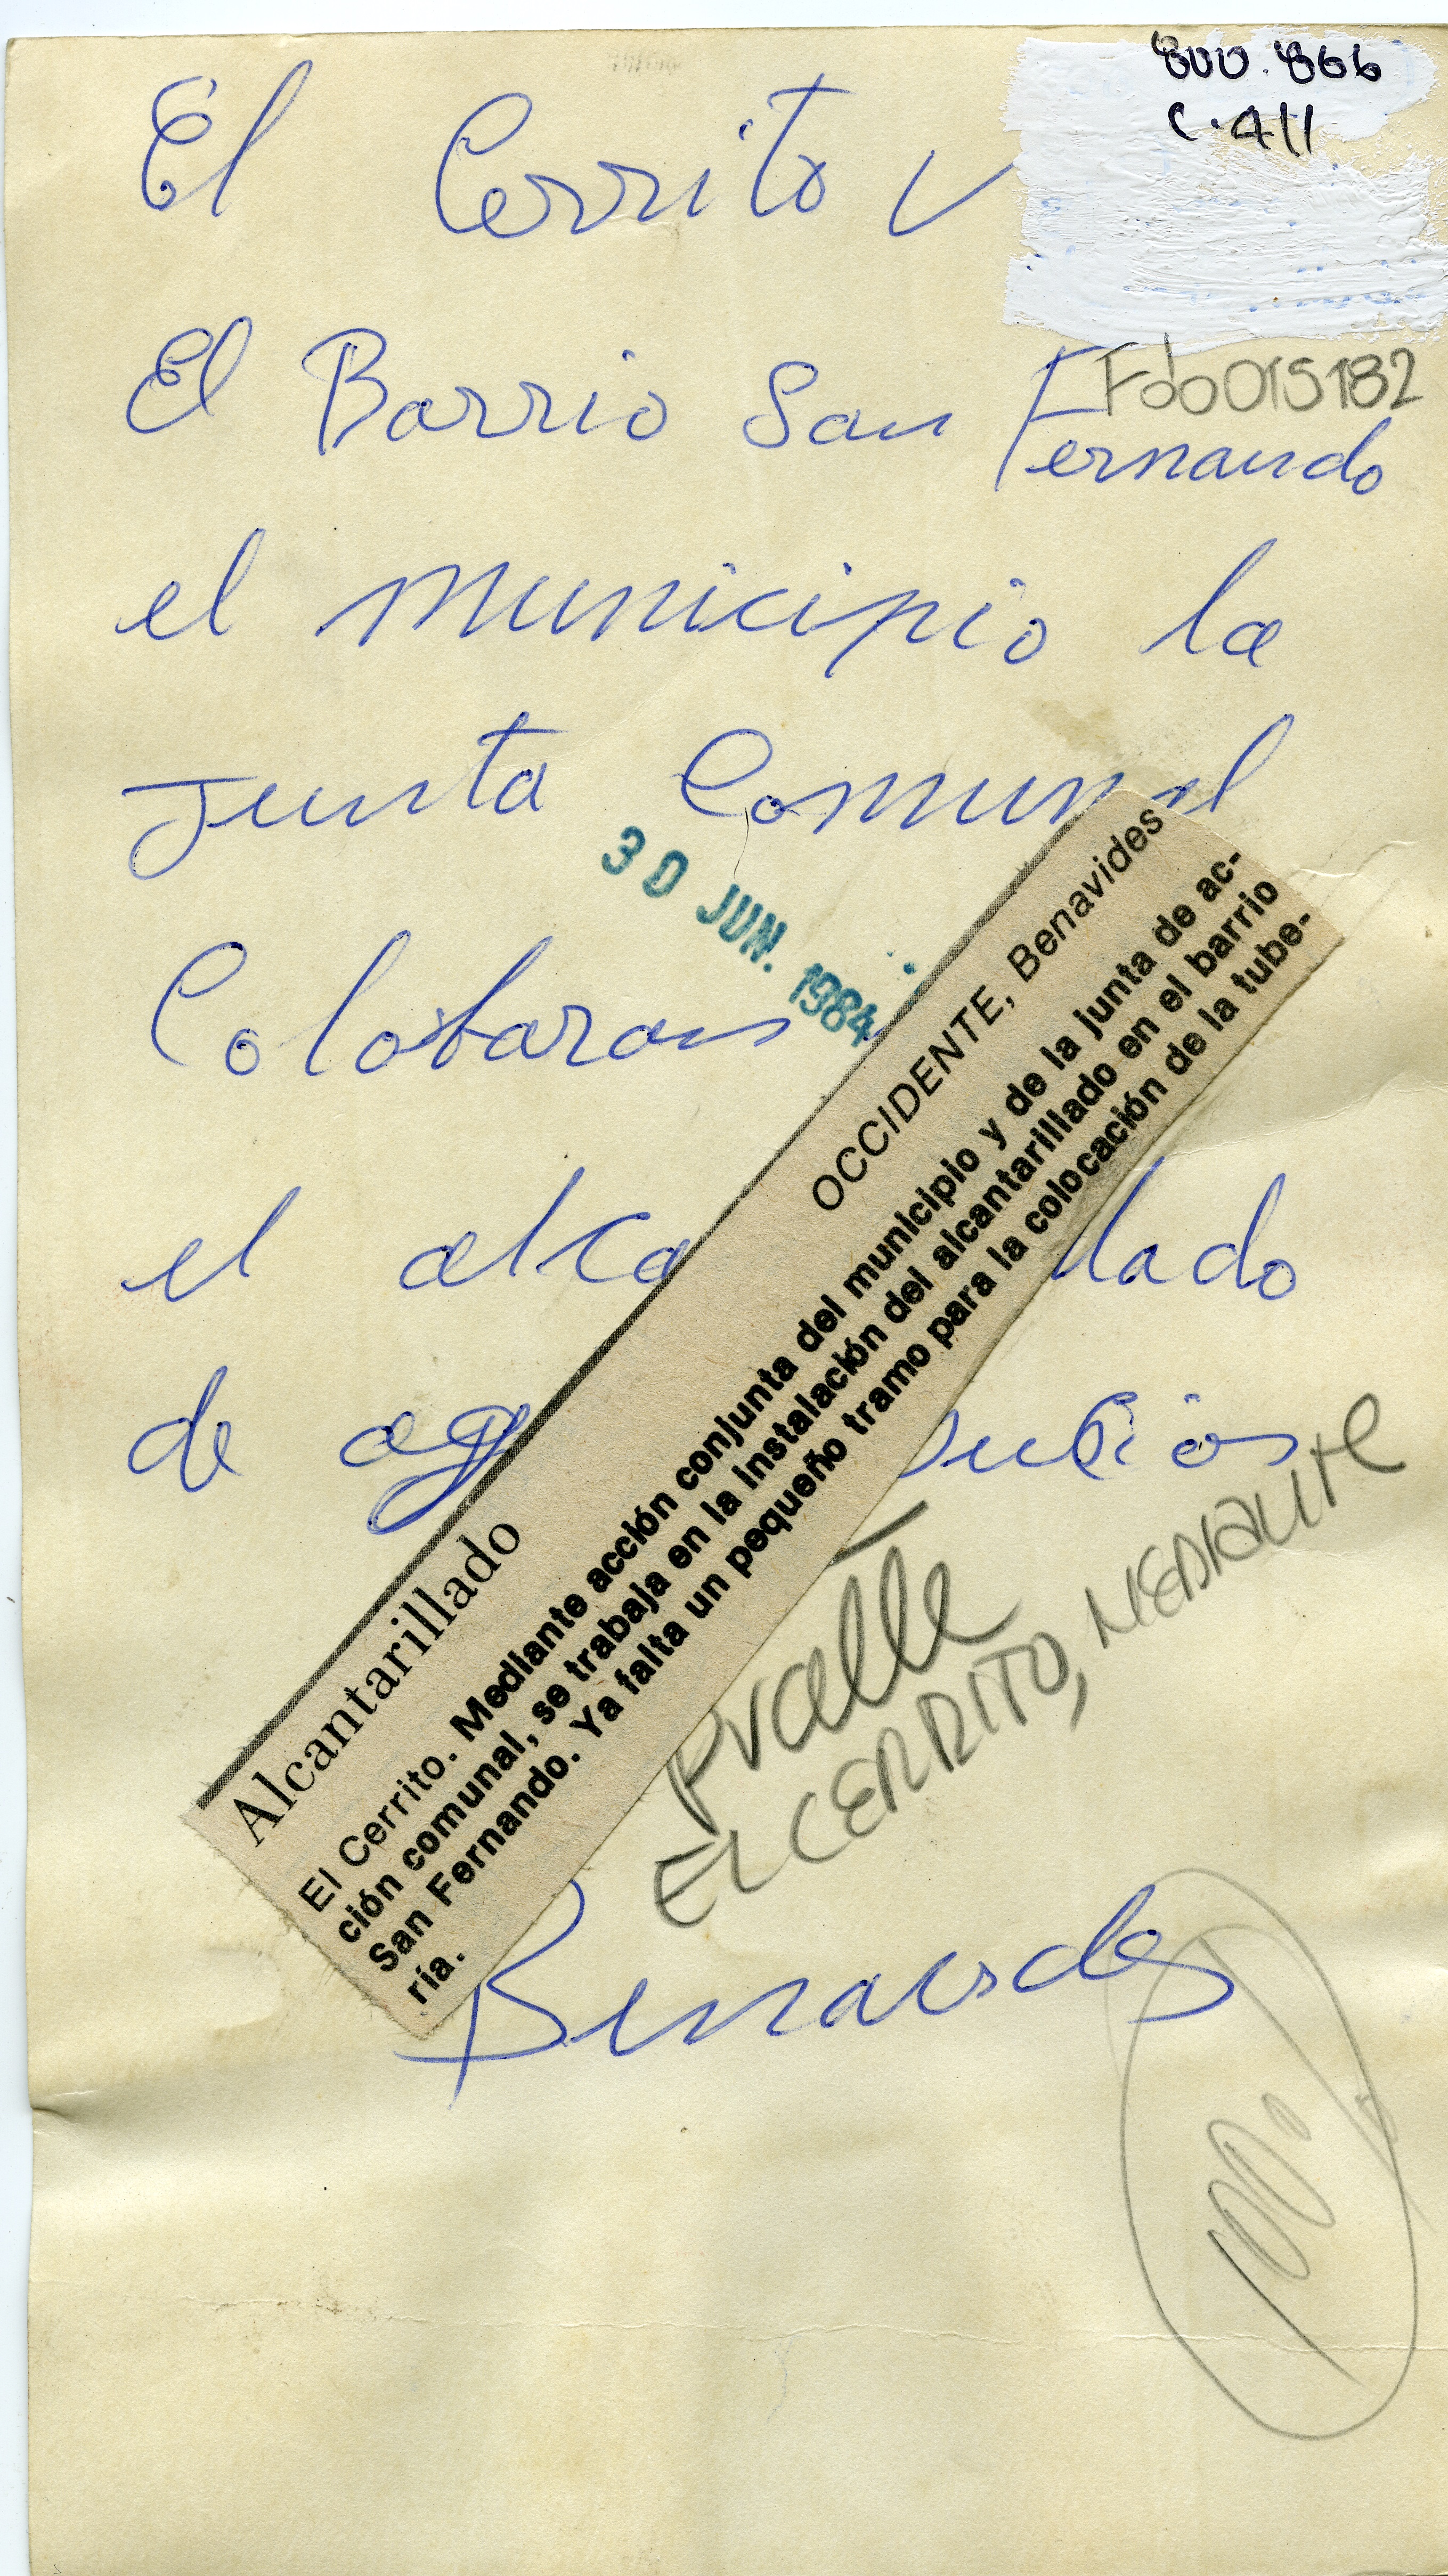 800.866
C.411
El Cerrito V
Fdo 015182
El Barrio San Fernando
el municipio la
Junta Comunal
30 JUN. 1984
Colobaron
el alca lado
de ag sucias
Alcantarillado
OCCIDENTE, Benavides
El Cerrito. Mediante acción conjunta del municipio y de la junta de ac-
ción comunal, se trabaja en la instalación del alcantarillado en el barrio
San Fernando. Ya falta un pequeño tramo para la colocación de la tube-
ría.
Pvalle
EL CERRITO, MEDIANTE